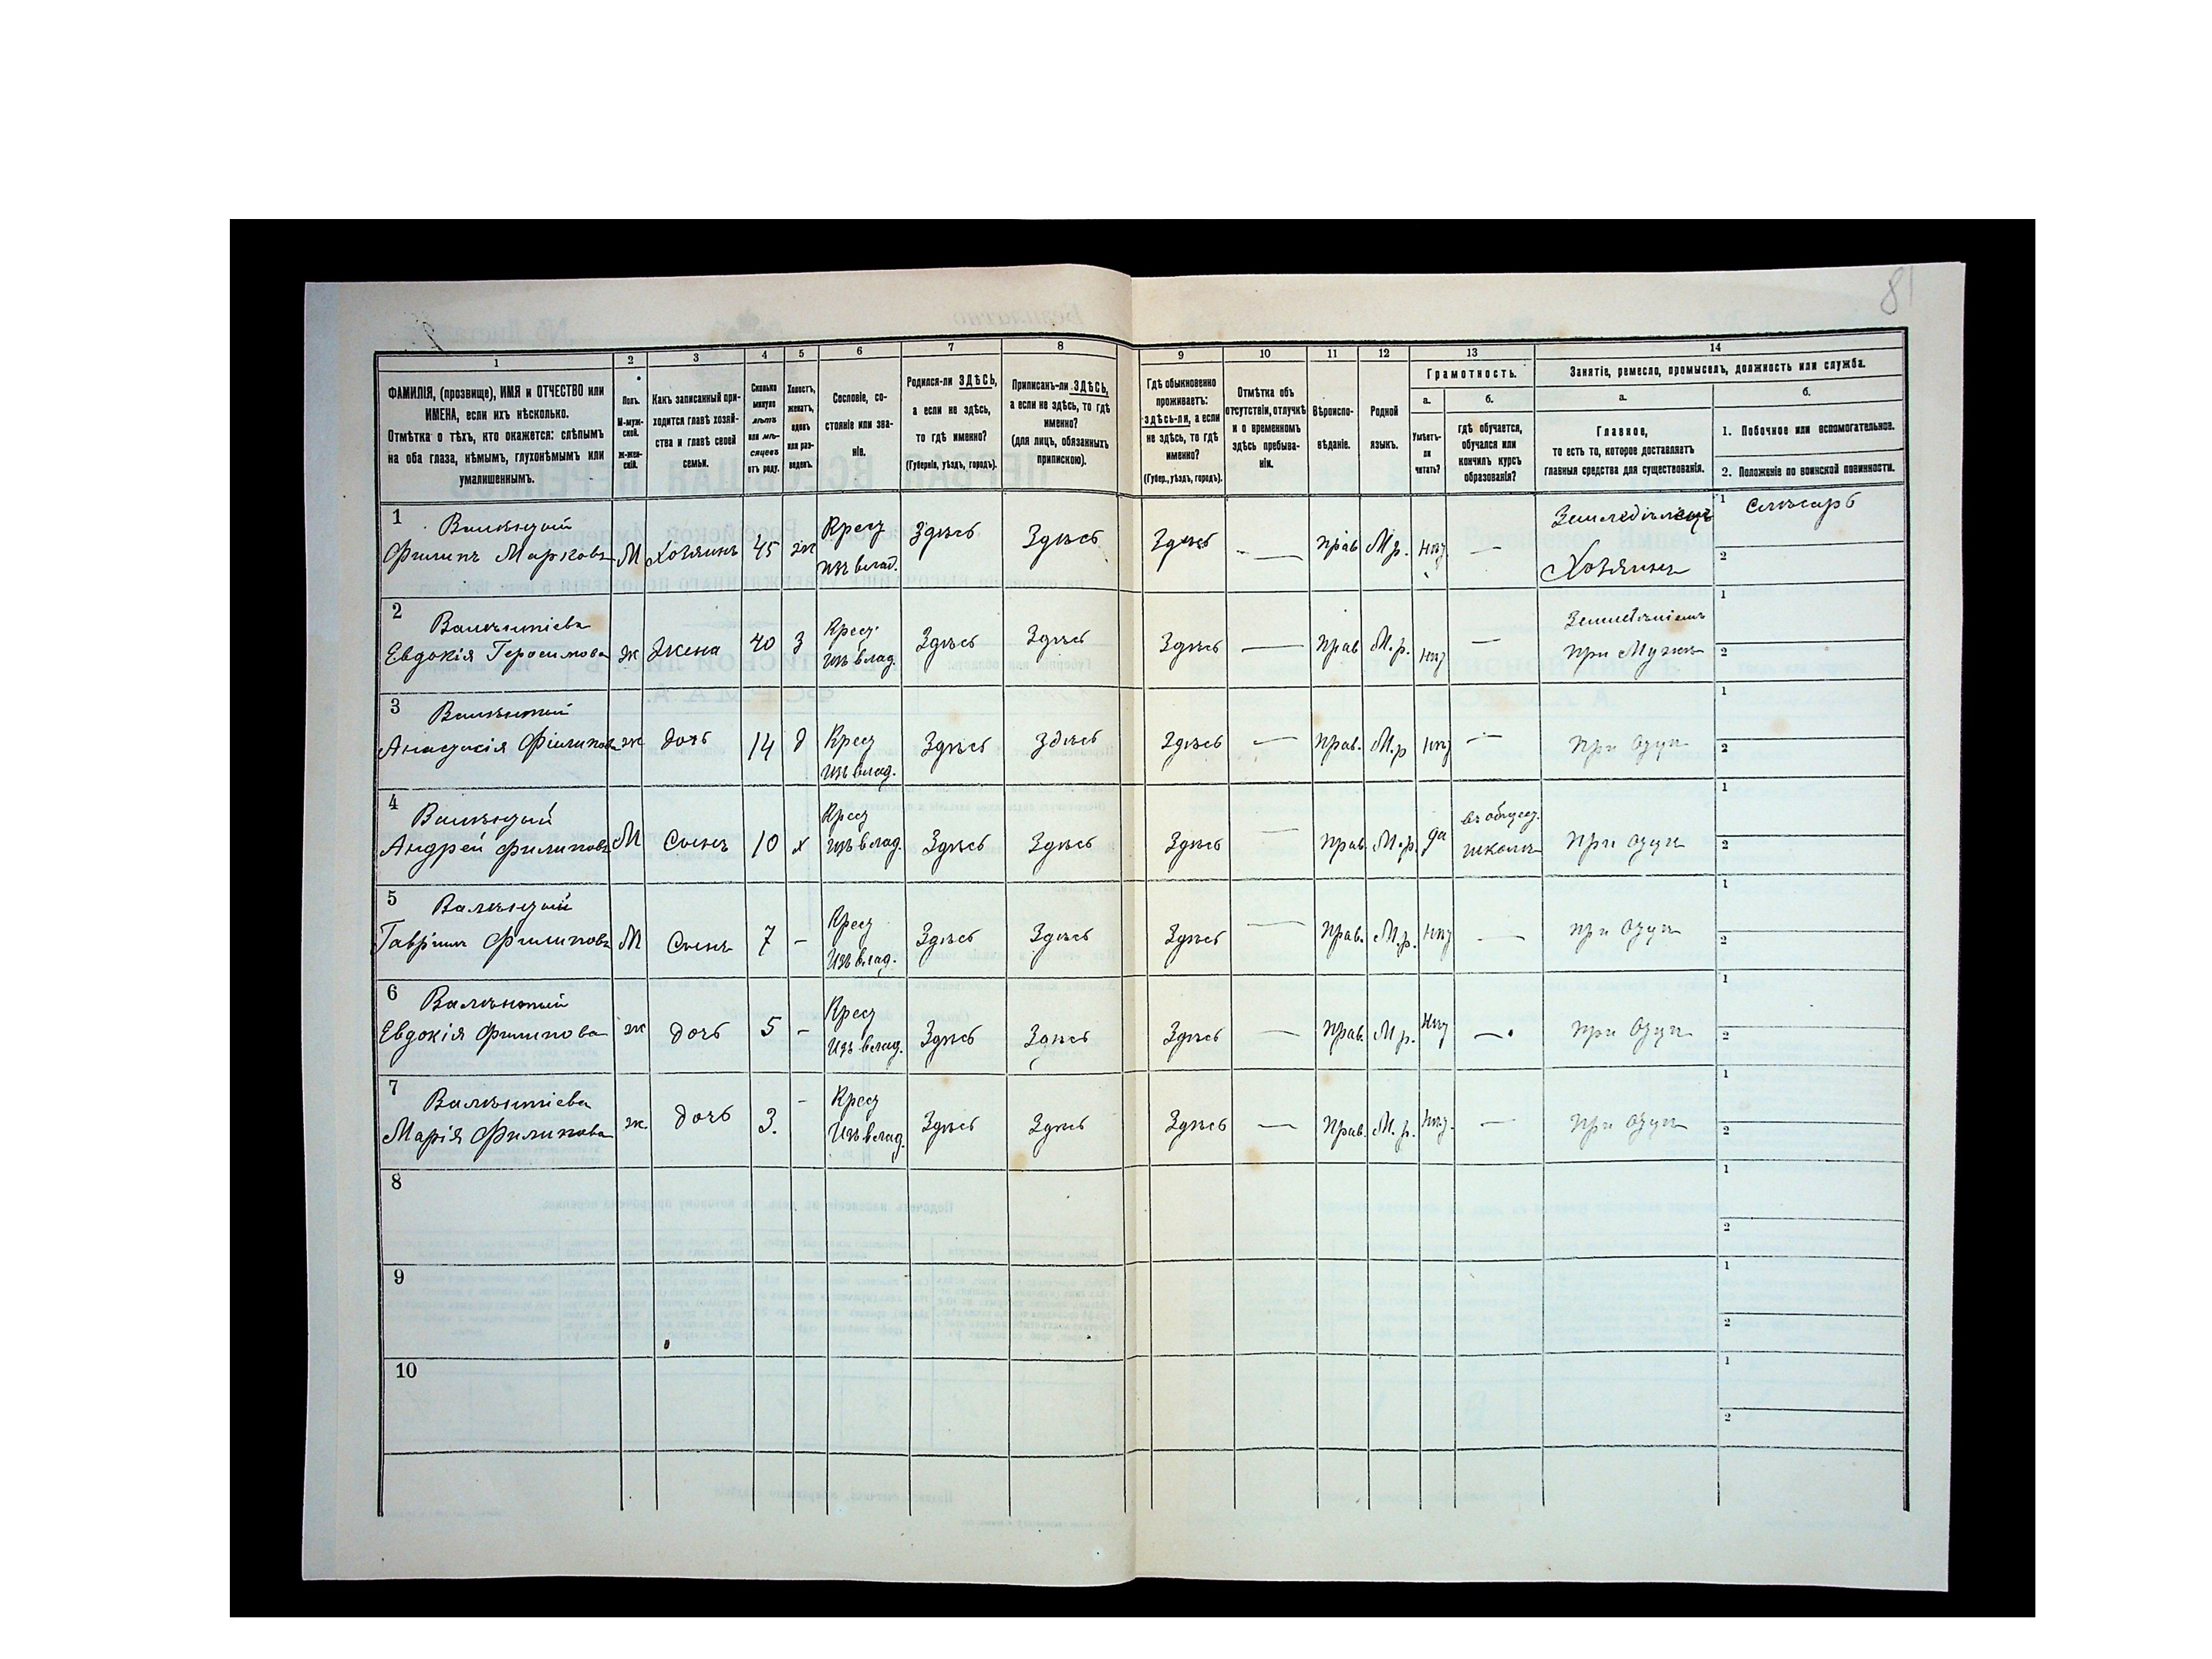 81
1 2 3 4 5 6 7 8 9 10 11 12 13 14
ФАМИЛІЯ, (прозвище), ИМЯ и ОТЧЕСТВО или
ИМЕНА, если ихъ нѣсколько.
Отмѣтка о тѣхъ, кто окажется: слѣпымъ
на оба глаза, нѣмымъ, глухонѣмымъ или
умалишеннымъ.
Полъ.
М-муж-
ской.
Ж-жен-
скій.
Какъ записанный при-
ходится главѣ хозяй-
ства и главѣ своей
семьи.
Сколько
минуло
лѣтъ
или мѣ-
сяцевъ
отъ роду.
Холостъ,
женатъ,
вдовъ
или раз-
веденъ.
Сословіе, со-
стояніе или зва-
ніе.
Родился-ли ЗДѢСЬ,
а если не здѣсь,
то гдѣ именно?
(Губернія, уѣздъ, городъ).
Приписанъ-ли ЗДѢСЬ,
а если не здѣсь, то гдѣ
именно?
(для лицъ, обязанныхъ
припискою).
Гдѣ обыкновенно
проживаетъ:
здѣсь-ли, а если
не здѣсь, то гдѣ
именно?
(Губер., уѣздъ, городъ).
Отмѣтка объ
отсутствіи, отлучкѣ
и о временномъ
здѣсь пребыва-
ніи.
Вѣроиспо-
вѣданіе.
Родной
языкъ.
Грамотность.
а.
Умѣетъ-
ли
читать?
б.
гдѣ обучается,
обучался или
кончилъ курсъ
образованія?
Занятіе, ремесло, промыселъ, должность или служба.
а.
Главное,
то есть то, которое доставляетъ
главныя средства для существованія.
б.
1. Побочное или вспомогательное.
2. Положеніе по воинской повинности.
1
Филипъ Марковъ М Хозяинъ 45 ж Крест изъ влад. Здѣсь Здѣсь Здѣсь — прав М р. нѣт — Земледѣлецъ Хозяинъ 1 Слѣсарь 2
2
Евдокія Геросимова ж Жена 40 з Крест изъ влад. Здѣсь Здѣсь Здѣсь — прав М. р. нѣт — при Мужѣ 1 2
3
Анастасія Філипова ж дочь 14 д Крест изъ влад. Здѣсь Здѣсь Здѣсь — прав. М. р нѣт — при Отцѣ 1 2
4
Андрей Филиповъ М Сынъ 10 х Крест изъ влад. Здѣсь Здѣсь Здѣсь — прав. М. р. да школѣ при Отцѣ 1 2
5
Гавріил Филиповъ М Сынъ 7 – Крест изъ влад. Здѣсь Здѣсь Здѣсь — прав. М. р. нѣт — при Отцѣ 1 2
6
Евдокія Филипова ж дочь 5 – Крест изъ влад. Здѣсь Здѣсь Здѣсь — прав. М р. нѣт — при Отцѣ 1 2
7
Марія Филипова ж. дочь 3. – Крест изъ влад. Здѣсь Здѣсь Здѣсь — прав. М. р. нѣт. — при Отцѣ 1 2
8 1 2
9 1 2
10 1 2